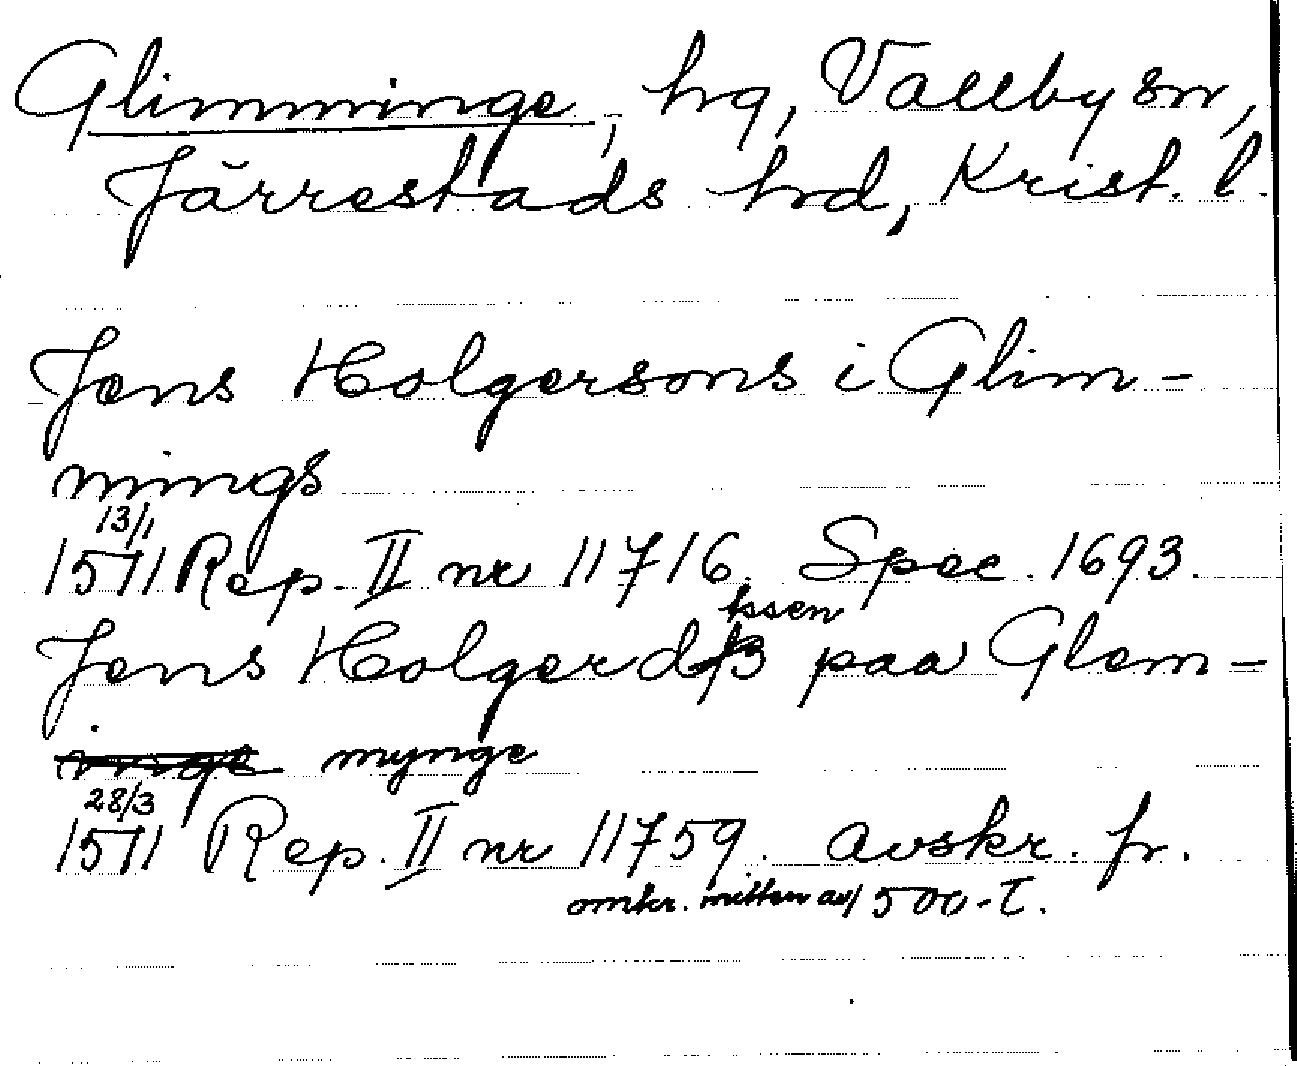 Glimminge, hg, Vallby sn,
Järrestads hd, Krist. l.
Jens Holgersøns i Glim-
mings
13/1
1511 Rep. II nr 11716. Spec. 1693.
tssen
Jens Holgerd paa Glem-
mynge
28/3
1511 Rep. II nr 11759. avskr. fr.
omkr. mitten av 1500-t.